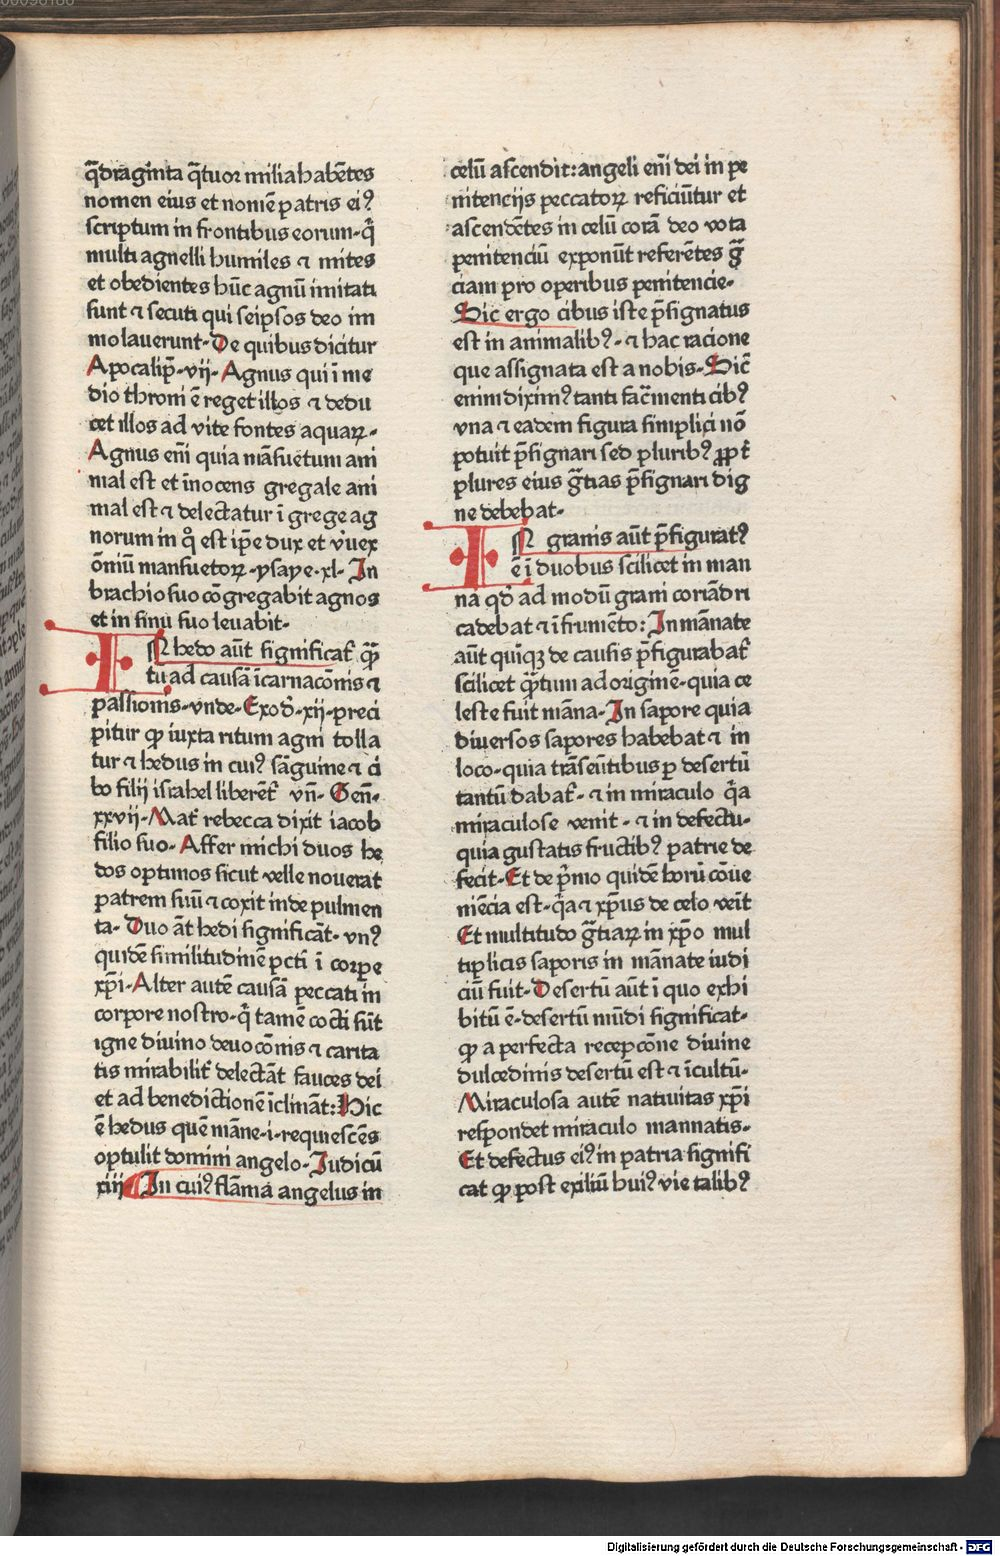 q̄draginta q̄tuor milia habētes
nomen eius et nomē patris eiꝰ
scriptum in frontibus eorum·q̄
multi agnelli humiles ⁊ mites
et obedientes hūc agnū imitati
sunt ⁊ secuti qui seipsos deo im
molauerunt·De quibus dicitur
Apocalip̄·vij·Agnus qui ī me
dio throni ē reget illos ⁊ dedu
cet illos ad vite fontes aquaꝝ·
Agnus em̄ quia māsuetum ani
mal est et īnocens gregale ani
mal est ⁊ delectatur ī grege ag
norum in q̊ est ip̄e dux et vivex
ōniū mansuetoꝝ·ysaye·xl·In
brachio suo cōgregabit agnos
et in sinu suo leuabit·
IN hedo aūt significat᷑ qꝫ̄
tū ad causā īcarnacōnis ⁊
passionis·vnde·Exod̄·xij·preci
pitur ꝙ iuxta ritum agni tolla
tur ⁊ hedus in cuiꝰ sāguine ⁊ ci
bo filij israhel liberet᷑ vn̄·Gen̄·
xxvij·Mat᷑ rebecca dixit iacob
filio suo·Affer michi duos he
dos optimos sicut velle nouerat
patrem suū ⁊ coxit inde pulmen
ta·Duo āt hedi significāt·vnꝰ
quidē similitudinē pct̄i ī corpe
xp̄i·Alter autē causā peccati in
corpore nostro·q̄ tamē cocti sūt
igne diuino deuocōnis ⁊ carita
tis mirabilit᷑ delectāt fauces dei
et ad benedictionē īclināt:Hic
ē hedus quē māne·i·requiescēs
optulit domini angelo·Iudicū
xiij·In cuiꝰ flāma angelus in
celū ascendit:angeli em̄ dei in pe
nitencijs peccatoꝝ reficiūtur et
ascendētes in celū corā deo vota
penitenciū exponūt referētes grā
ciam pro operibus penitencie·
Hic ergo cibus iste p̄signatus
est in animalibꝰ·⁊ hac racione
que assignata est a nobis·Sic̄
enim diximꝰ tanti sac̄menti cibꝰ
vna ⁊ eadem figura simplici nō
potuit p̄signari sed pluribꝰ ꝓpt᷑
plures eius gr̄tias p̄signari dig
ne debebat·
IN granis aūt p̄figuratꝰ
ē ī duobus scilicet in man
na qd̄ ad modū grani coriādri
cadebat ⁊ ī frumēto:In mānate
aūt quiqꝫ de causis p̄figurabat᷑
scilicet qꝫ̄tum ad originē·quia ce
leste fuit māna·In sapore quia
diuersos sapores habebat ⁊ in
loco·quia trāseūtibus ꝑ desertū
tantū dabat᷑·⁊ in miraculo q̄a
miraculose venit·⁊ in defectu·
quia gustatis fructibꝰ patrie de
fecit·Et de p̄mo quidē horū cōue
niēcia est·q̄a ⁊ xp̄us de celo veīt
Et multitudo gr̄tiaꝝ in xp̄o mul
tiplicis saporis in mānate iudi
ciū fuit·Desertū aūt ī quo exhi
bitū ē·desertū mūdi significat·
ꝙ a perfecta recepcōne diuine
dulcedinis desertū est ⁊ īcultū·
Miraculosa autē natiuitas xp̄i
respondet miraculo mannatis·
Et defectus eiꝰ in patria signifi
cat ꝙ post exiliū huiꝰ vie talibꝰ
Digitalisierung gefördert durch die Deutsche Forschungsgemeinschaft - DFG